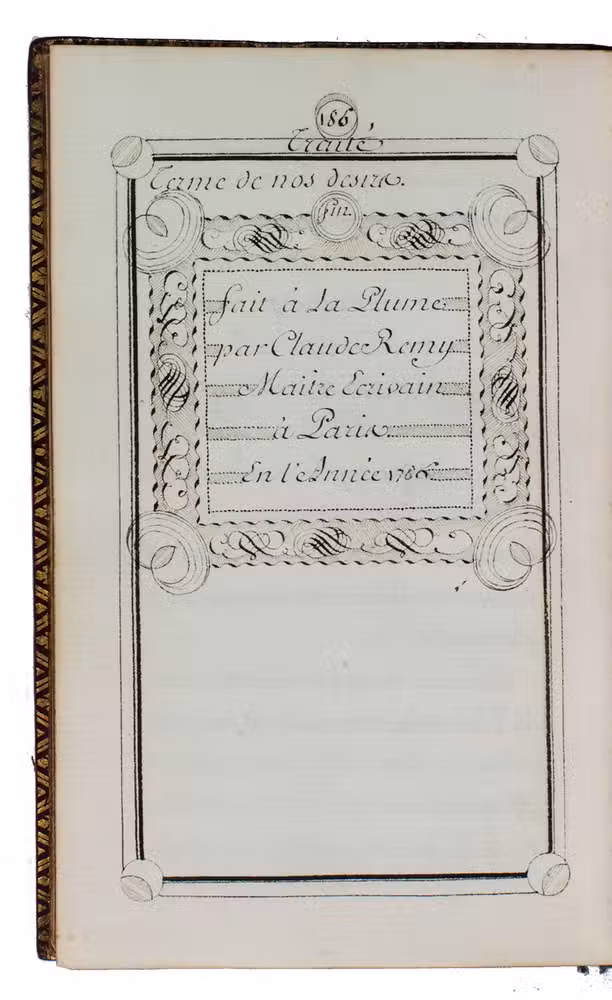 186
Traité
Terme de nos desirs.
fin.
fait à la Plume
par Claude Remy
Maître Ecrivain
à Paris
En l'Année 1786